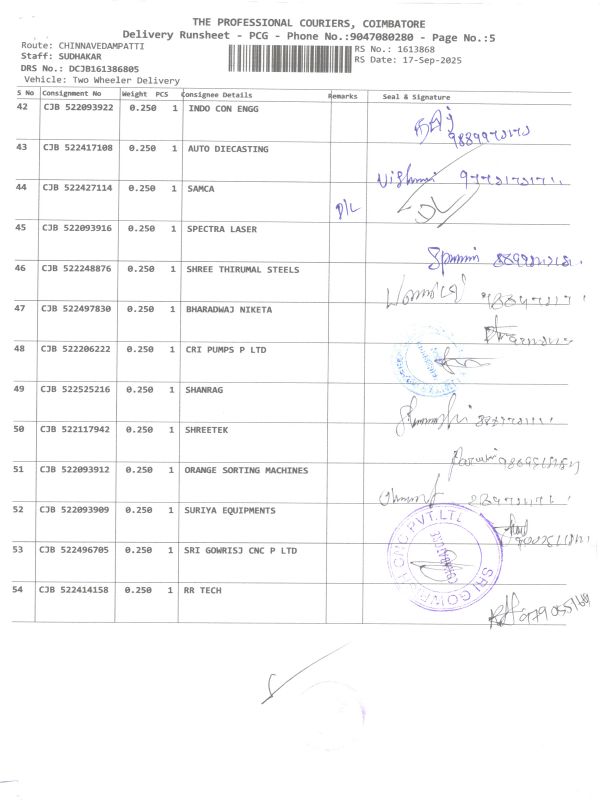 THE PROFESSIONAL COURIERS, COIMBATORE
Delivery Runsheet - PCG - Phone No.:9047080280 - Page No.:5
Route: CHINNAVEDAMPATTI
RS No.: 1613868
Staff: SUDHAKAR
RS Date: 17-Sep-2025
DRS No.: DCJB161386805
Vehicle: Two Wheeler Delivery
S No Consignment No Weight PCS Consignee Details Remarks Seal & Signature
42 CJB 522093922 0.250 1 INDO CON ENGG
43 CJB 522417108 0.250 1 AUTO DIECASTING
44 CJB 522427114 0.250 1 SAMCA D/L DL
45 CJB 522093916 0.250 1 SPECTRA LASER
46 CJB 522248876 0.250 1 SHREE THIRUMAL STEELS
47 CJB 522497830 0.250 1 BHARADWAJ NIKETA
48 CJB 522206222 0.250 1 CRI PUMPS P LTD
49 CJB 522525216 0.250 1 SHANRAG
50 CJB 522117942 0.250 1 SHREETEK
51 CJB 522093912 0.250 1 ORANGE SORTING MACHINES
52 CJB 522093909 0.250 1 SURIYA EQUIPMENTS
53 CJB 522496705 0.250 1 SRI GOWRISJ CNC P LTD
54 CJB 522414158 0.250 1 RR TECH